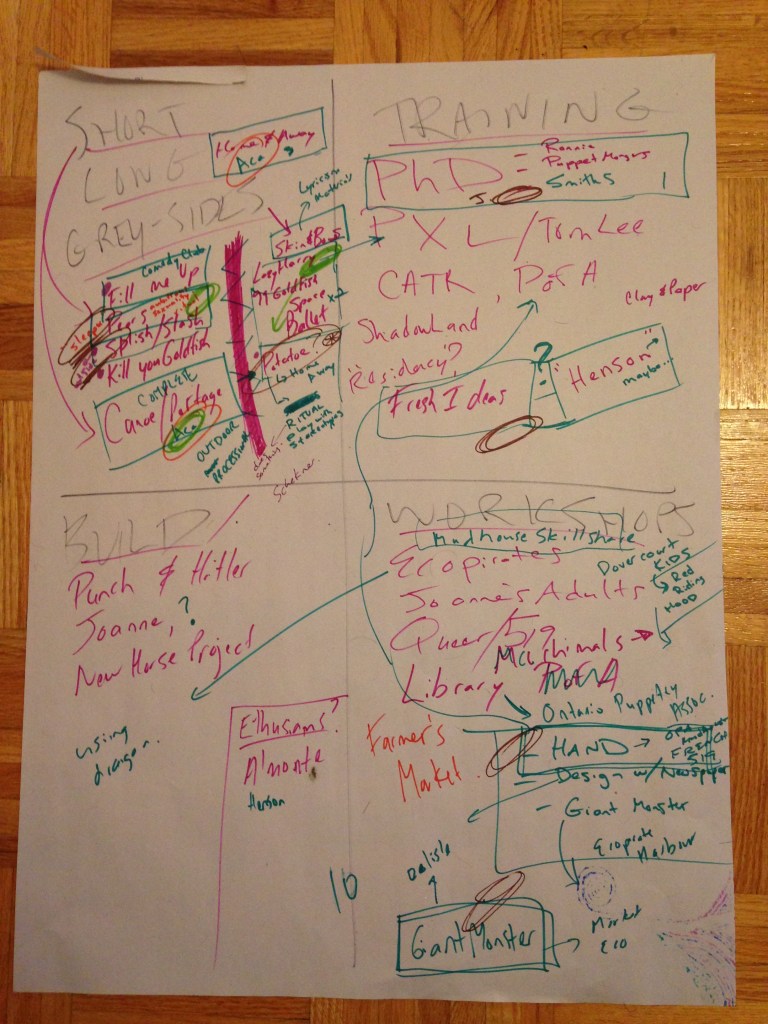 SHORT
LONG
GREY-SIDES
Home & Away
Aca
Lyrics on
Materials
Comedy Club
Fill me Up
Splish/Stash
Kill your Goldfish
COMPLETE
Canoe/Portage
Aca
OUTDOOR
PROCESSIONAL
Skin & Bones
Goldfish
Space
Ballet x2
Potatoe?
Home
Away
RITUAL
play with
Stereotypes
TRAINING
PhD
- Ronnie
- Puppet Mongers
Smiths
PXL/Tom Lee
CATR, PofA
Clay & Paper
Shadowland
"Residacy"?
Fresh Ideas
?
"Henson"
maybe...
BUILD
Punch & Hitler
Joanne, ?
New House Project
using
dragon.
Ethusiams?
A'monte
Henson
10
WORKSHOPS
Madhouse Skillshare
Ecopirates
Dovercourt
KIDS
Red
Riding
HOOD
Joanne's Adults
Queer/519
Mushimals
Library PofA
Ontario Puppetry
Assoc.
Farmer's
Market
- HAND →
- Design w/ Newspaper
- Giant Monster
Ecopirate
Harbour
Giant Monster
Market
Eco